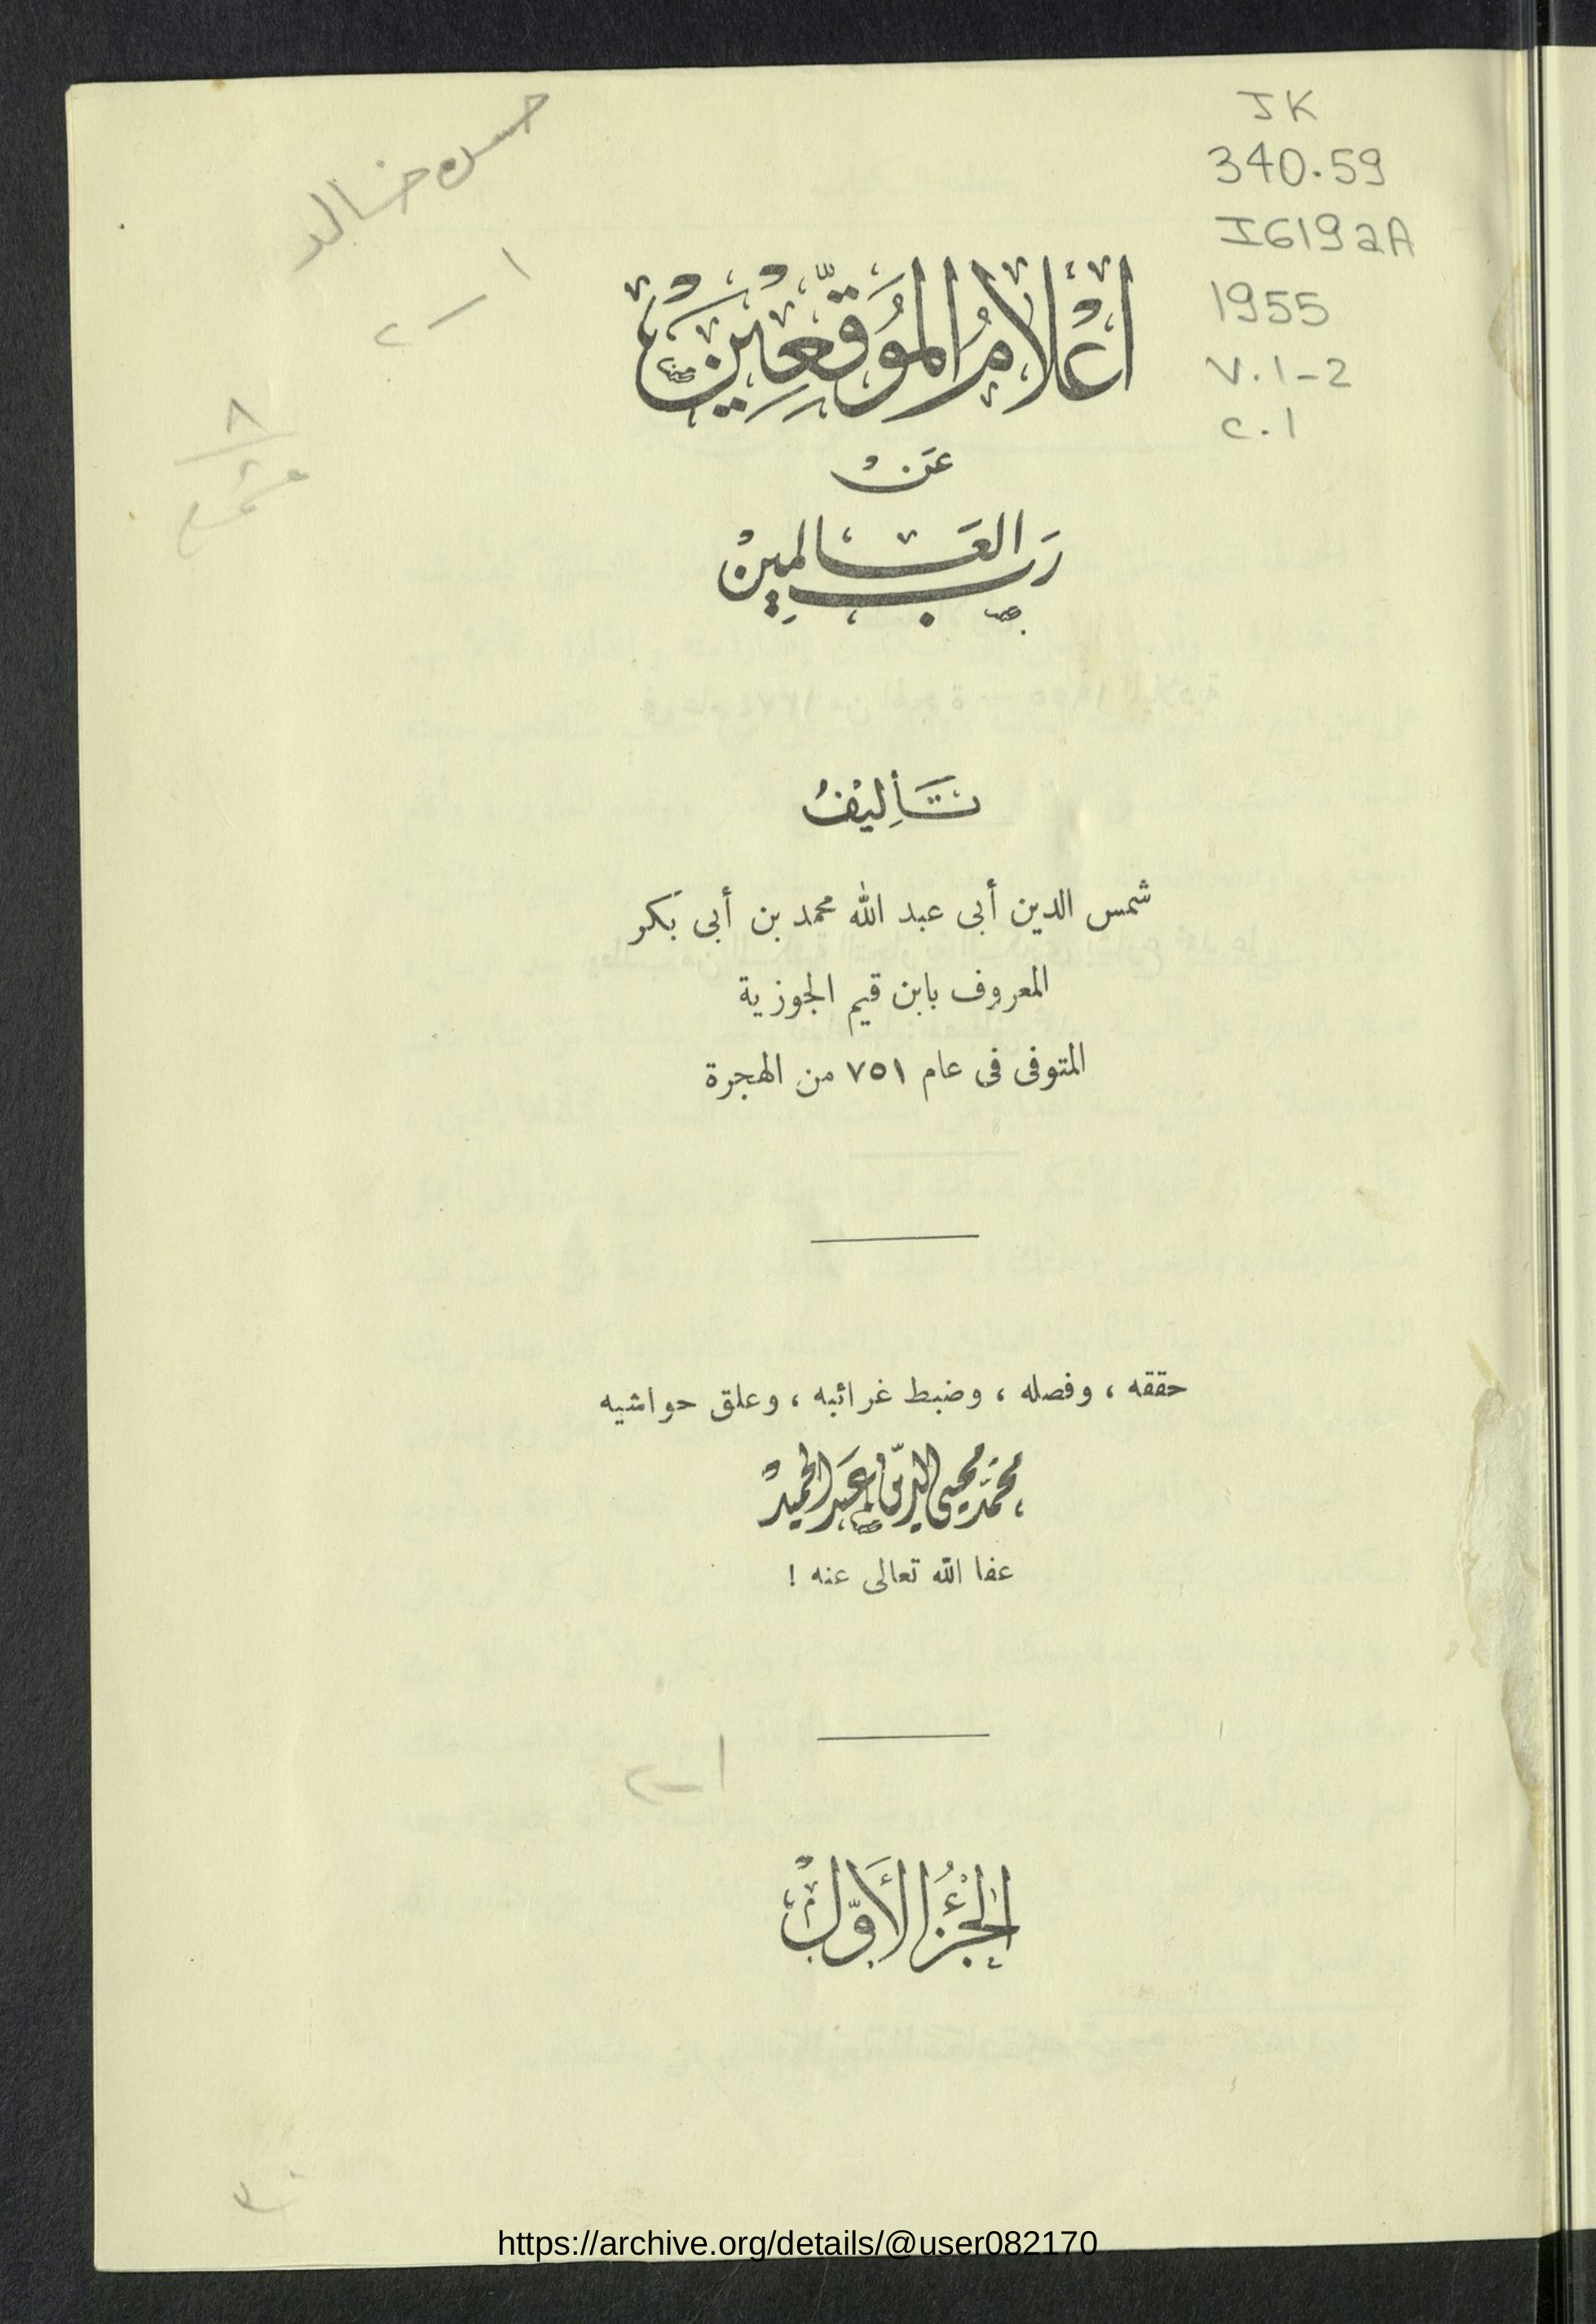 حسن خالد
١ - ٢
JK
340.59
I619aA
1955
v.1-2
c.1
٨
اعْلامُ المُوَقّعِينَ
عَنْ
رَبِّ العَالمِينْ
تَأليفُ
شمس الدين أبى عبد الله محمد بن أبى بكر
المعروف بابن قيم الجوزية
المتوفى فى عام ٧٥١ من الهجرة
حققه ، وفصله ، وضبط غرائبه ، وعلق حواشيه
محَمّد محيى الدّين عَبد الحميدْ
عفا الله تعالى عنه !
١-٢
الجُزْءُ الأَوّلْ
https://archive.org/details/@user082170